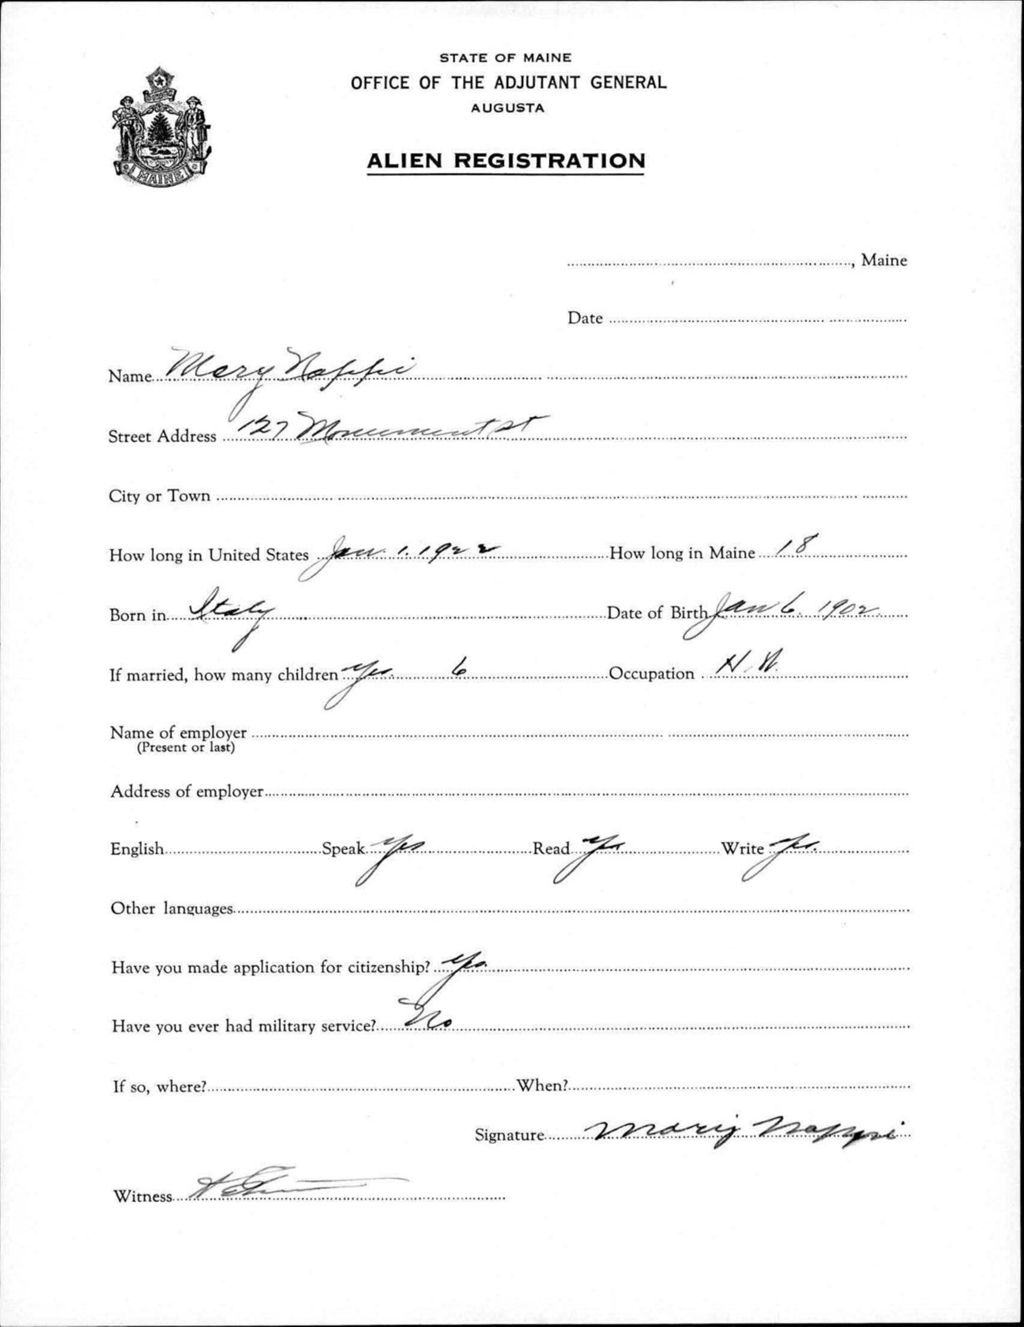 STATE OF MAINE
OFFICE OF THE ADJUTANT GENERAL
AUGUSTA
ALIEN REGISTRATION
MAINE
, Maine
Date
Name Mary Nappi
Street Address 127 Monument St
City or Town
How long in United States Jan. 1. 1922 How long in Maine 18
Born in Italy Date of Birth Jan 6. 1902
If married, how many children Yes. 6 Occupation H. W.
Name of employer
(Present or last)
Address of employer
English Speak Yes Read Yes Write Yes.
Other languages
Have you made application for citizenship? Yes.
Have you ever had military service? No
If so, where? When?
Signature Mary Nappi
Witness